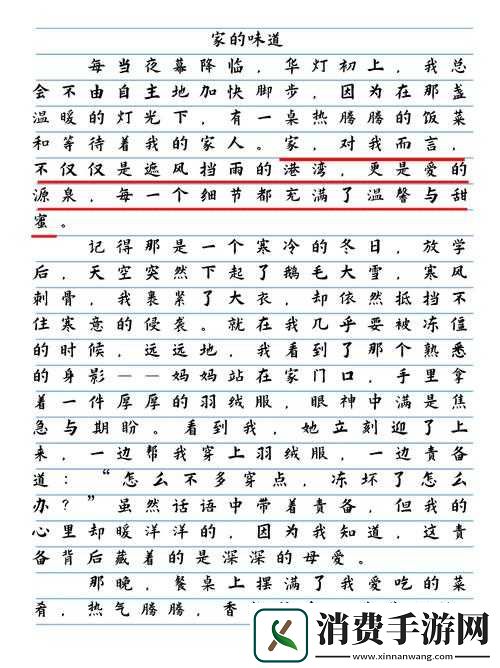 家的味道
每当夜幕降临，华灯初上，我总
会不由自主地加快脚步，因为在那盏
温暖的灯光下，有一桌热腾腾的饭菜
和等待着我的家人。家，对我而言，
不仅仅是遮风挡雨的港湾，更是爱的
源泉，每一个细节都充满了温馨与甜
蜜。
记得那是一个寒冷的冬日，放学
后，天空突然下起了鹅毛大雪，寒风
刺骨，我裹紧了大衣，却依然抵挡不
住寒意的侵袭。就在我几乎要被冻僵
的时候，远远地，我看到了那个熟悉
的身影——妈妈站在家门口，手里拿
着一件厚厚的羽绒服，眼神中满是焦
急与期盼。看到我，她立刻迎了上
来，一边帮我穿上羽绒服，一边责备
道：“怎么不多穿点，冻坏了怎么
办？”虽然话语中带着责备，但我的
心里却暖洋洋的，因为我知道，这责
备背后藏着的是深深的母爱。
那晚，餐桌上摆满了我爱吃的菜
肴，热气腾腾，香
消费手游网
www.xinnanwang.com